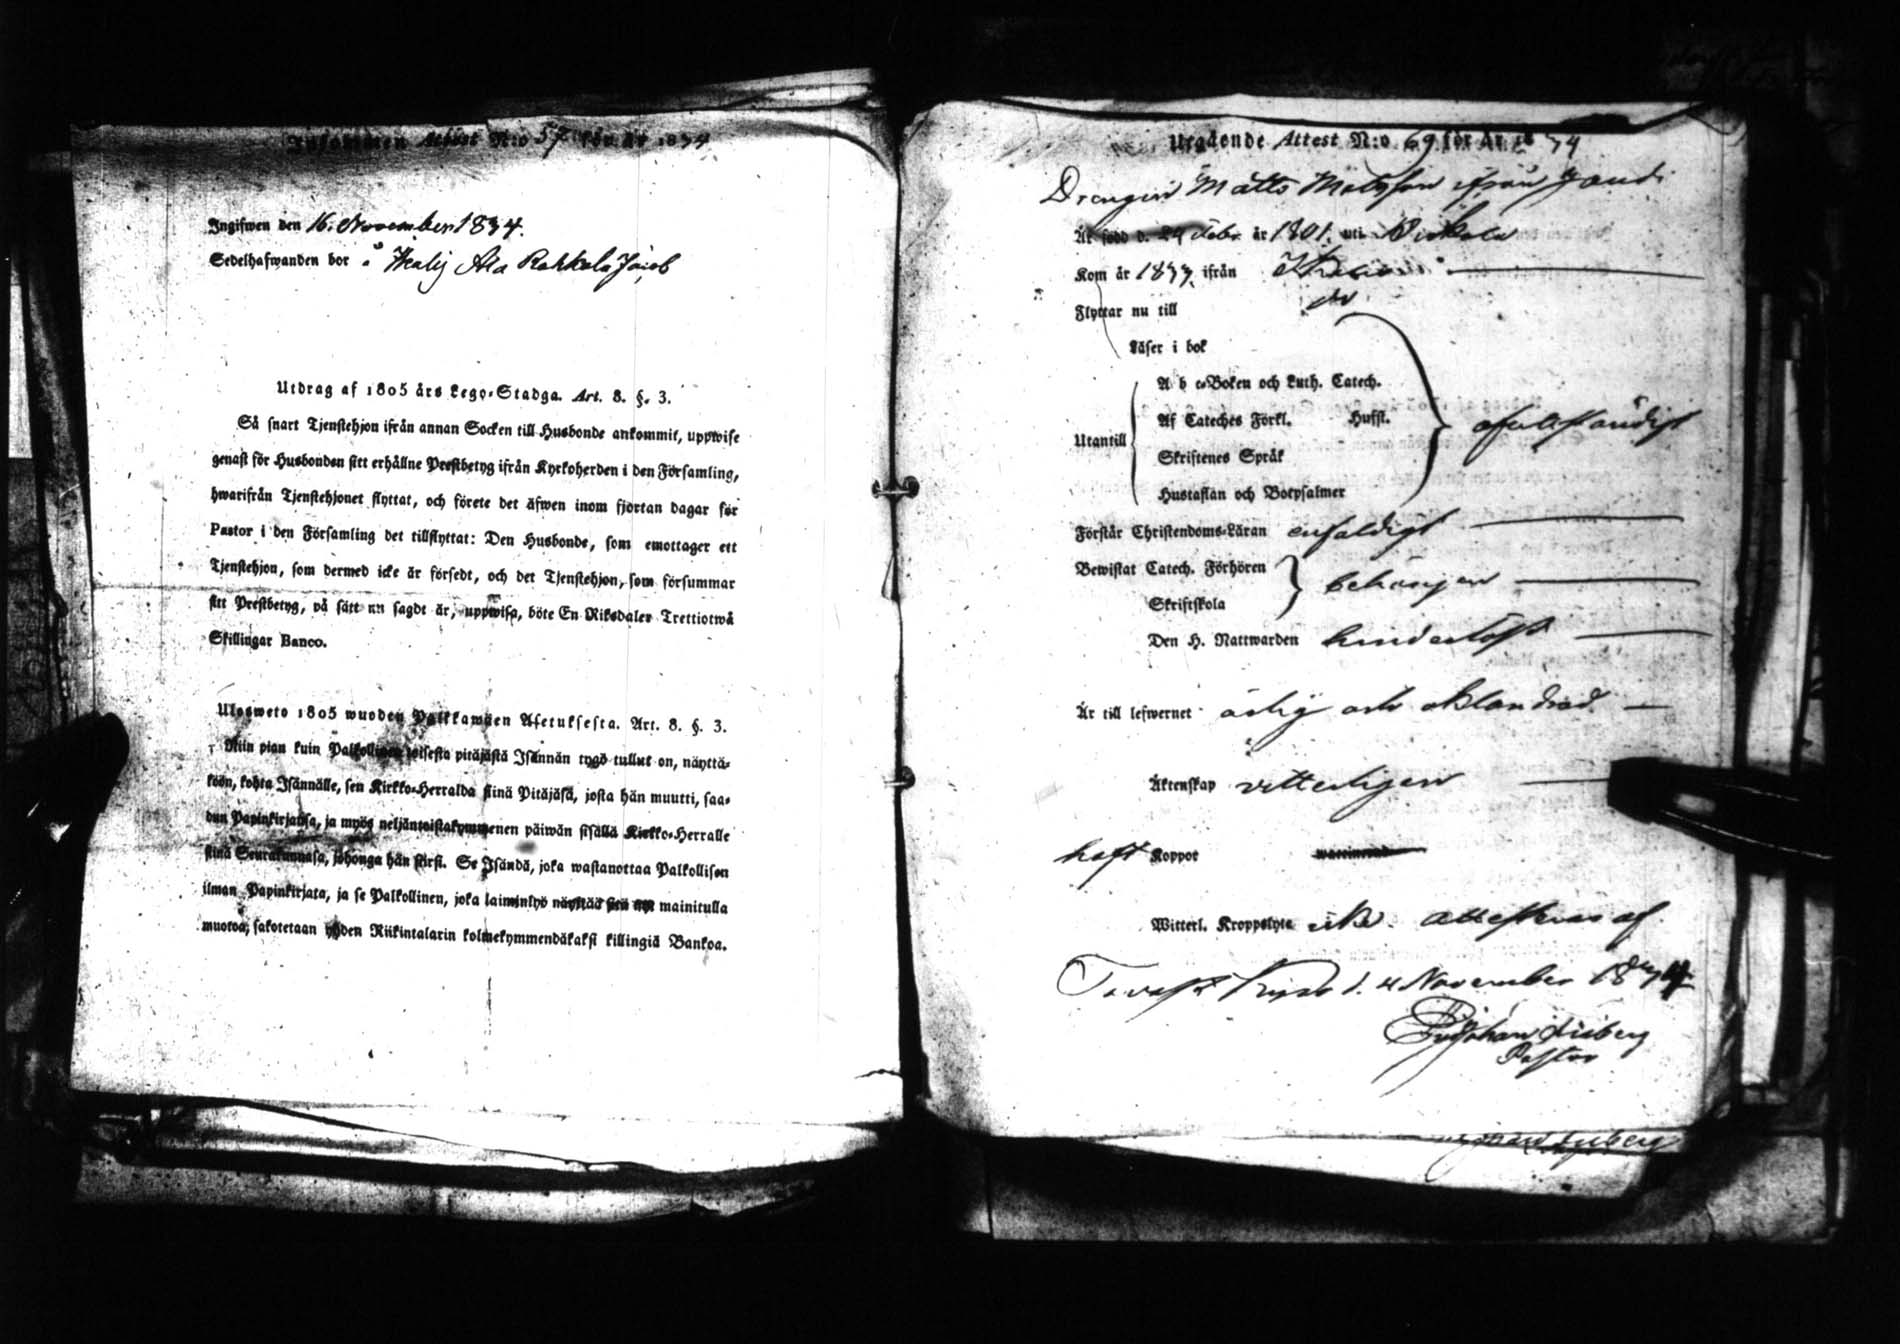 Inkommen Attest N:o 57 för år 1834
Ingifwen den 16. November 1834.
Sedelhafwanden bor å Ala Rakkola
Utdrag af 1805 års Lego-Stadga. Art. 8. §. 3.
Så snart Tjenstehjon ifrån annan Socken till Husbonde ankommit, uppwise
genast för Husbonden sitt erhållne Prestbetyg ifrån Kyrkoherden i den Församling,
hwarifrån Tjenstehjonet flyttat, och förete det äfwen inom fjortan dagar för
Pastor i den Församling det tillflyttat: Den Husbonde, som emottager ett
Tjenstehjon, som dermed icke är försedt, och det Tjenstehjon, som försummar
sitt Prestbetyg, på sätt nu sagdt är, uppwisa, böte En Riksdaler Trettiotwå
Skillingar Banco.
Ulosweto 1805 wuoden Palkkawäen Asetuksesta. Art. 8. §. 3.
Niin pian kuin Palkollinen toisesta pitäjästä Isännän tygö tullut on, näyttä-
köön, kohta Isännälle, sen Kirkko-Herralda siinä Pitäjäsä, josta hän muutti, saa-
dun Papinkirjansa, ja myös neljäntoistakymmenen päiwän sisällä Kirkko-Herralle
siinä Seurakunnasa, johonga hän siirsi. Se Isändä, joka wastanottaa Palkollisen
ilman Papinkirjata, ja se Palkollinen, joka laiminlyö näyttää sen nyt mainitulla
muotoa, sakotetaan yhden Riikintalarin kolmekymmendäkaksi killingiä Bankoa.
Utgående Attest N:o 69 för år 1834
Drengen Matts Matsson ifrån
Är född d. 24 Febr. år 1801. uti
Kom år 1833 ifrån
Flyttar nu till
Läser i bok
A b c-Boken och Luth. Catech.
Utantill Af Cateches Förkl. Husst.
Skriftenes Språk
Hustaflan och Botpsalmer
ofullständigt
Förstår Christendoms-Läran enfaldigt
Bewistat Catech. Förhören
Skriftskola
behörigen
Den H. Nattwarden hinderlöst
Är till lefwernet ärlig och oklandrad
Äktenskap vitterligen
haft Koppor
Witterl. Kroppslyte icke. attesteras af
Tavast Kyro d. 4 November 1834
Johan Pastor